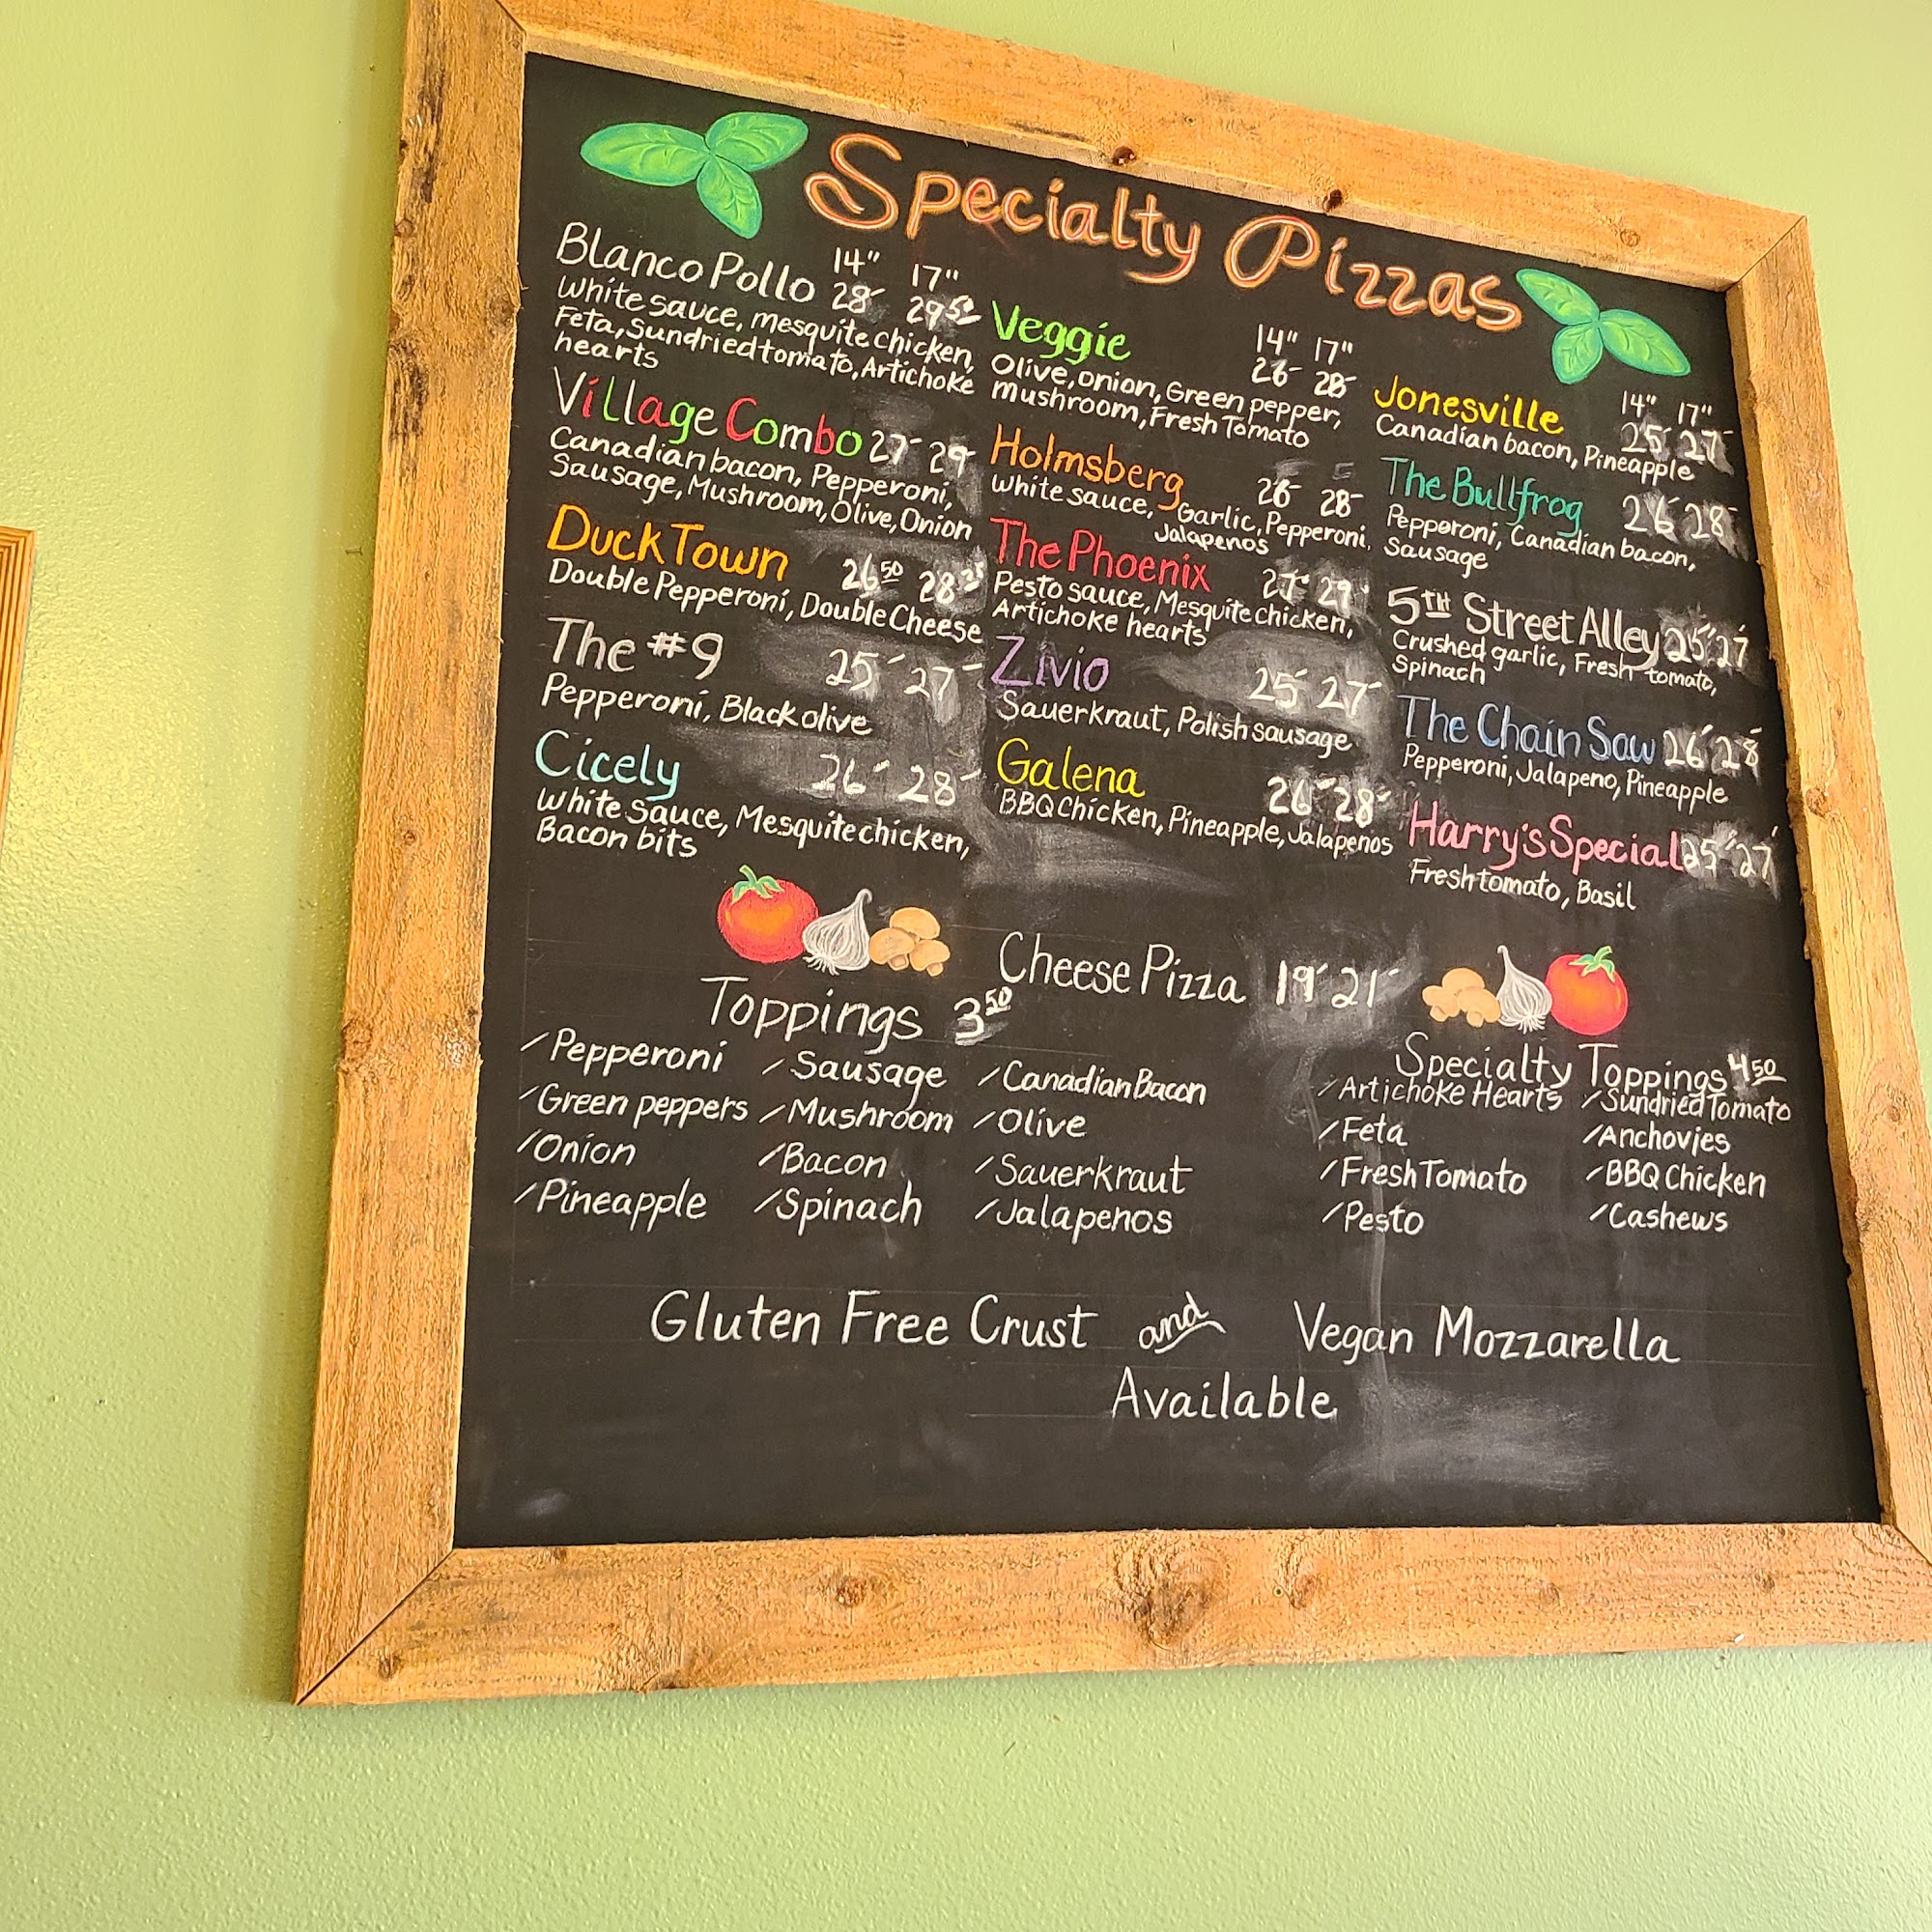 Specialty Pizzas
14" 17"
Blanco Pollo 28- 29 50
white sauce, mesquite chicken,
Feta, Sundried tomato, Artichoke
hearts
Village Combo 27- 29-
Canadian bacon, Pepperoni,
Sausage, Mushroom, Olive, Onion
Duck Town 26 50 28
Double Pepperoni, Double Cheese
The #9 25- 27-
Pepperoni, Black olive
Cicely 26- 28-
White Sauce, Mesquite chicken,
Bacon bits
14" 17"
Veggie 26- 28-
Olive, onion, Green pepper,
mushroom, Fresh Tomato
Holmsberg 26- 28-
white sauce, Garlic, Pepperoni,
Jalapenos
The Phoenix 27- 29-
Pesto sauce, Mesquite chicken,
Artichoke hearts
Zivio 25- 27-
Sauerkraut, Polish sausage
Galena 26- 28-
BBQ Chicken, Pineapple, Jalapenos
14" 17"
Jonesville 25- 27-
Canadian bacon, Pineapple
The Bullfrog 26- 28-
Pepperoni, Canadian bacon,
Sausage
5TH Street Alley 25- 27
Crushed garlic, Fresh tomato,
Spinach
The Chain Saw 26- 28-
Pepperoni, Jalapeno, Pineapple
Harry's Special 25- 27-
Fresh tomato, Basil
Cheese Pizza 19- 21-
Toppings 3 50
/Pepperoni /Sausage /Canadian Bacon
/Green peppers /Mushroom /Olive
/Onion /Bacon /Sauerkraut
/Pineapple /Spinach /Jalapenos
Specialty Toppings 4 50
/Artichoke Hearts /Sundried Tomato
/Feta /Anchovies
/Fresh Tomato /BBQ Chicken
/Pesto /Cashews
Gluten Free Crust and Vegan Mozzarella
Available